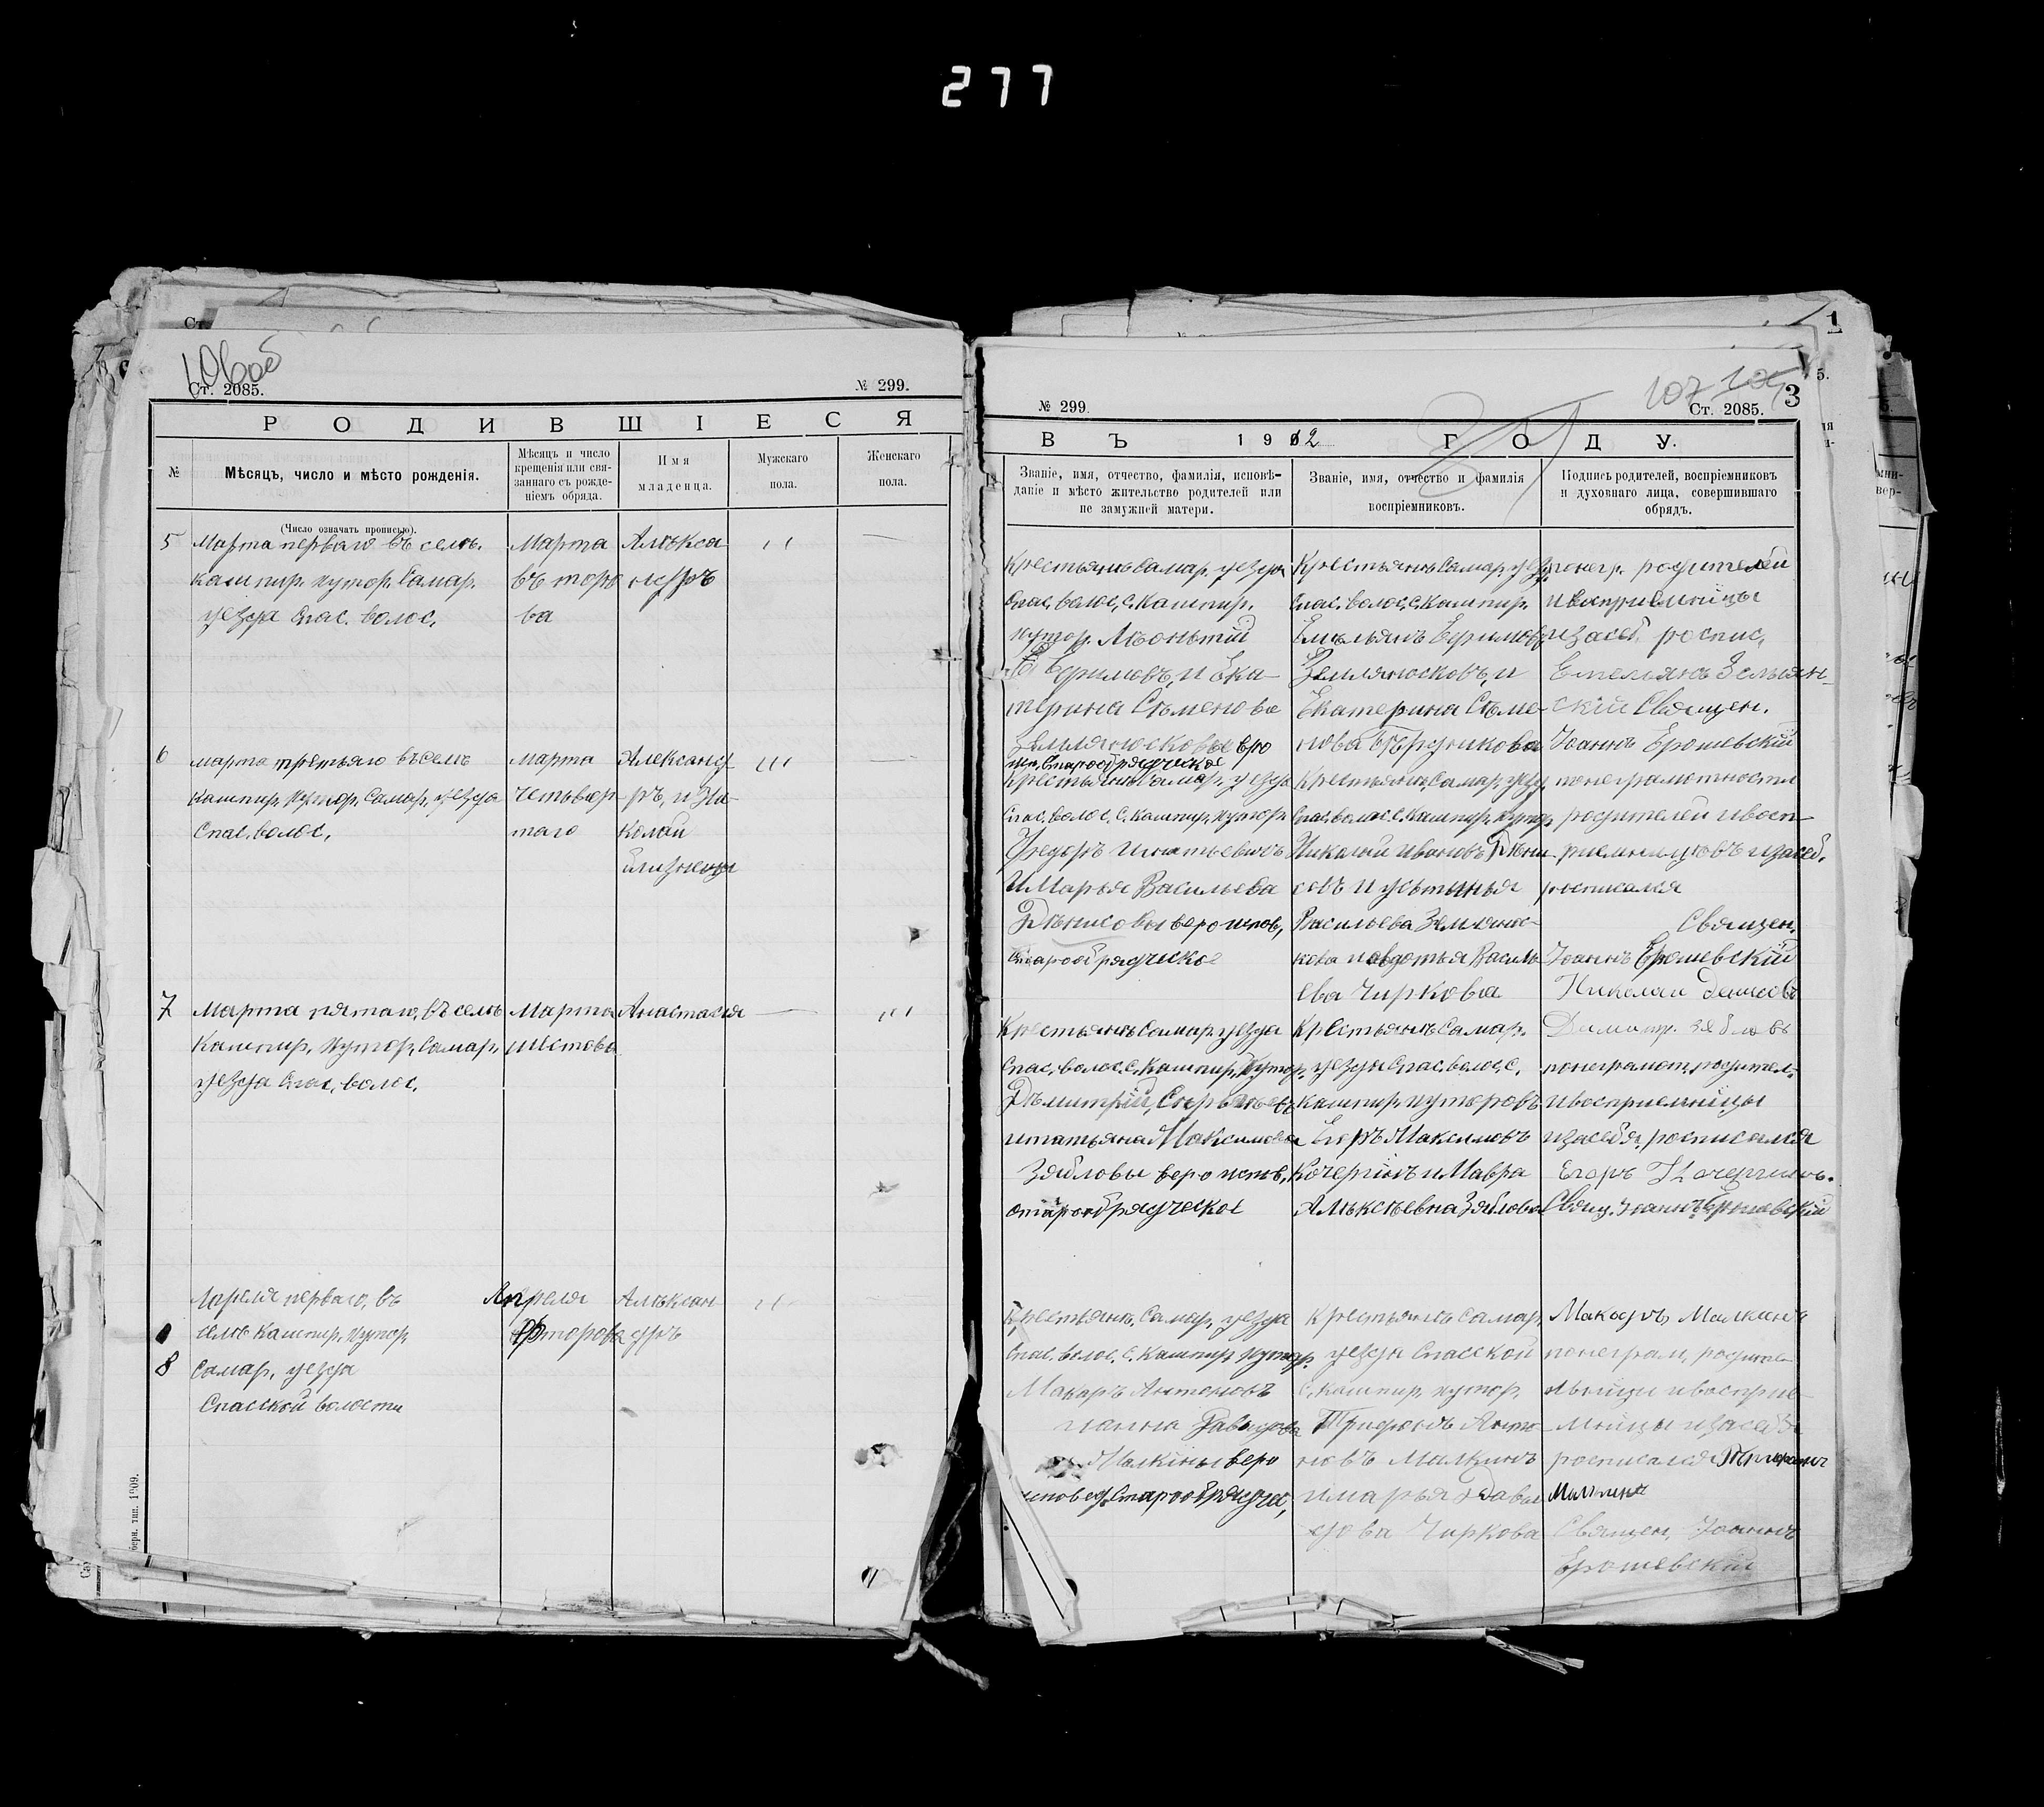 277
Ст. 2085.
№ 299.
РОДИВШІЕСЯ
№
Мѣсяцъ, число и мѣсто рожденія.
(Число означать прописью).
Мѣсяцъ и число
крещенія или свя-
заннаго съ рожде-
ніемъ обряда.
Имя
младенца.
Мужскаго
пола.
Женскаго
пола.
5
Марта перваго въ селѣ.
кашпир. хутор. Самар.
уезда Спас. волос.
Марта
въ торо
ва
Алѣкса
ндръ
6
марта третьяго въ селѣ
кашпир. хутор. Самар. уезда
Спас. волос.
марта
четьвѣр
таго
Александ
ръ, и Ни-
колай
близнецы
7
Марта пятаго, въ селѣ
Кашпир. хутор. Самар.
уезда Спас. волос.
Марта
шѣстова
Анастасия
8
Апреля перваго, въ
селѣ Кашпир. хутор.
Самар. уезда
Спасской волости
Апреля
второва
Алѣксан-
дръ
№ 299.
107
3
Ст. 2085.
ВЪ 1912 ГОДУ.
Званіе, имя, отчество, фамилія, исповѣ-
даніе и мѣсто жительство родителей или
не замужней матери.
Званіе, имя, отчество и фамилія
воспріемниковъ.
Подпись родителей, воспріемниковъ
и духовнаго лица, совершившаго
обрядъ.
Крестьянѣ Самар. уезда
Спас. волос. с. Кашпир.
хутор. Лѣоньтій
Ефимовъ, и Ека-
терина Сѣменова
Землянюсковы веро
исп. Старообрядческое
Крестьянѣ Самар. уезд.
Спас. волос. с. Кашпир.
Емельянъ Ефимовъ
Землянюсковъ, и
Екатерина Сѣме-
нова Бердникова
понегр. родителей
и васприемницы
изасеб. роспис.
Емельянъ Земьян-
скій Священ.
Іоаннъ Ерошевскій
Крестьянѣ Самар. уезда
Спас. волос. с. Кашпир. хутор.
Федоръ Игнатьевичъ
И Марья Васильева
Дѣнисовы веро испов.
Старообрядческое
Крестьянѣ, Самар. уезд.
Спас. волос. с. Кашпир. хутор.
Николай Ивановъ Дѣни
совъ и устинья
Васильева Землянос-
кова иавдотья Василь
ева Чиркова
понеграмотности
родителей ивосп-
риемницовъ изасеб.
росписался
Священ.
Іоаннъ Ерошевскій
Николай Денисовъ
Крестьянѣ Самар. уезда
Спас. волос. с. Кашпир. хутор.
Дѣмитрій, Сергѣевъ
и татьяна Максимова
Зябловы веро испов.
старообрядческое
Крестьянѣ Самар.
уезда Спас. волос. с.
кашпир. хуторовъ
Егоръ Максимовъ
Кочергінъ и Мавра
Алѣксѣевна Зяблова
Димитр. Зябловъ
понеграмот. родител.
ивосприемницы
изасебя, росписался
Егоръ Кочергинъ.
Свящ. Іоаннъ Ерошевскій
Крестьянѣ. Самар. уезда
Спас. волос. с. Кашпир. хутор.
Макаръ Антоновъ
ианна Давыдова
Малкіны веро
исповед. Старообрядчес.
Крестьянѣ Самар.
уезда Спасской
с. кашпир. хутор.
Трифонъ Анто-
новъ Малкинъ
имарья Давы
дова Чиркова
Макаръ Малкинъ
понеграм. родите-
льницы ивосприе-
мницы изасебя
росписался Трифонъ
Малкинъ
Священ. Іоаннъ
Ерошевскій